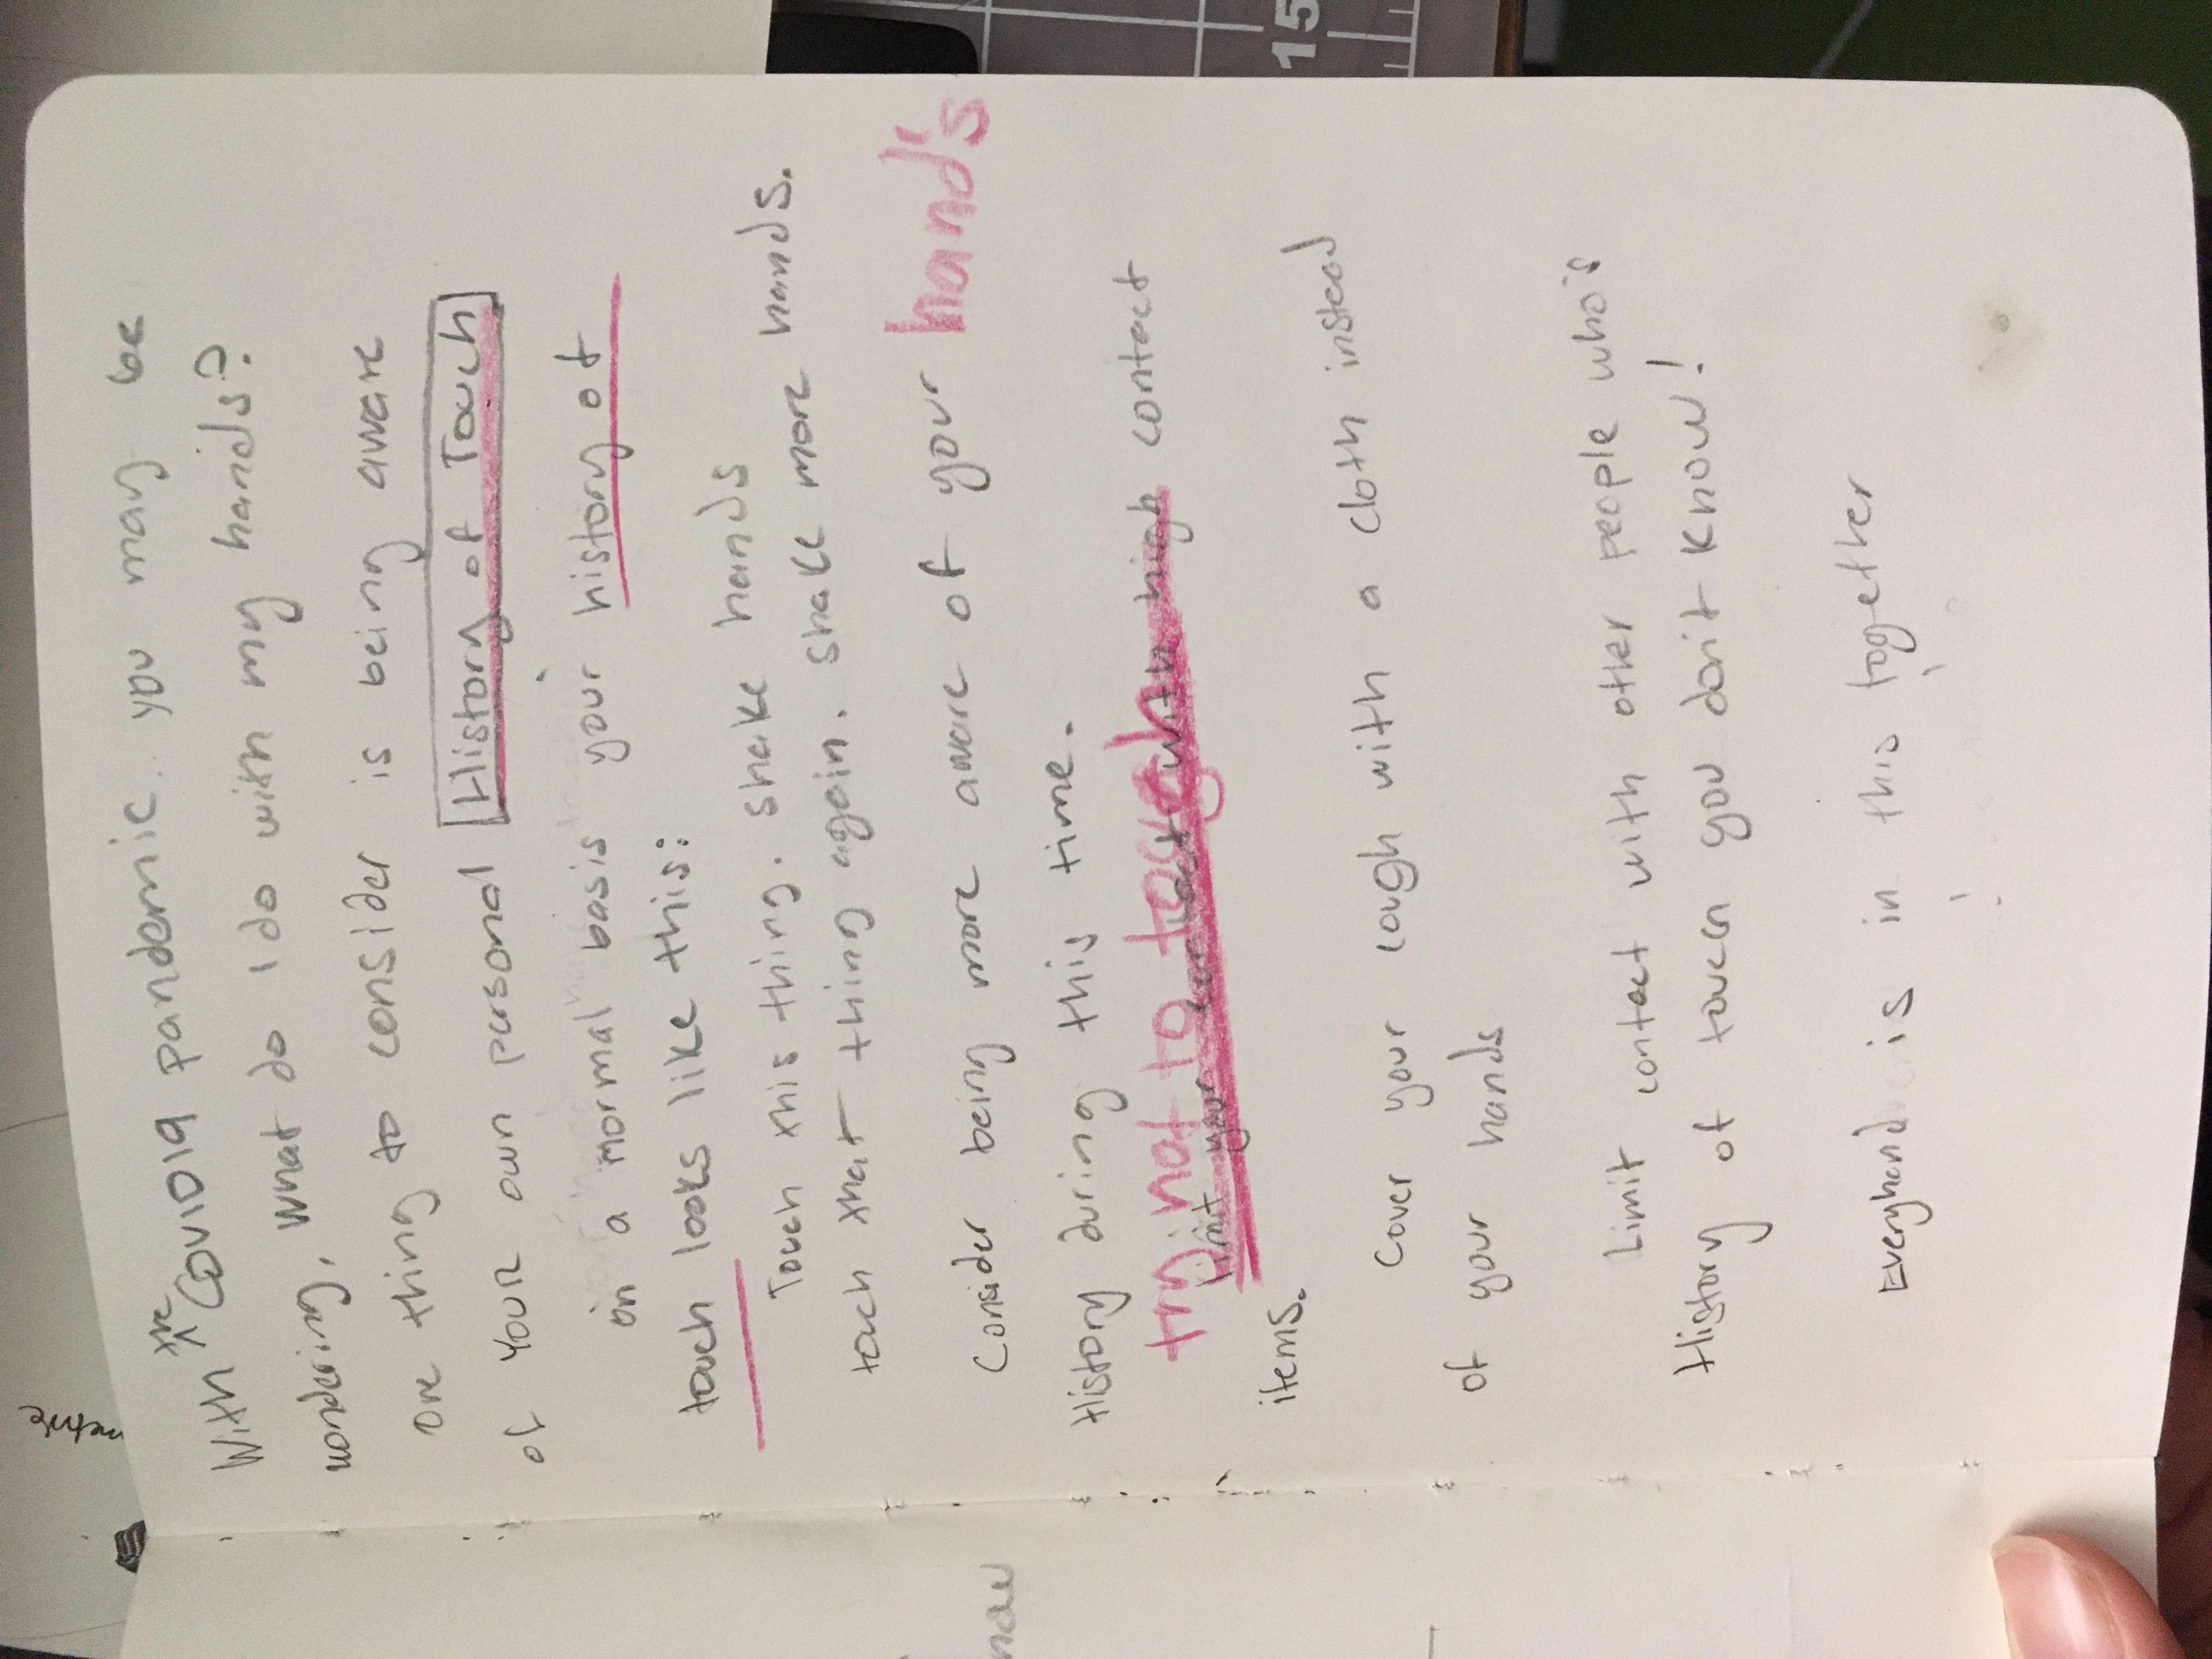 With the COVID19 pandemic you may be
wondering, What do I do with my hands?
One thing to consider is being aware
of YOUR own personal History of Touch
on a normal basis your history of
touch looks like this:
Touch this thing. Shake hands
touch that thing again. Shake more hands.
Consider being more aware of your hand's
History during this time.
try not to touch
limit your contact with high contact
items.
Cover your cough with a cloth instead
of your hands
Limit contact with other people who's
History of touch you don't know!
Everyhand is in this together
now
15